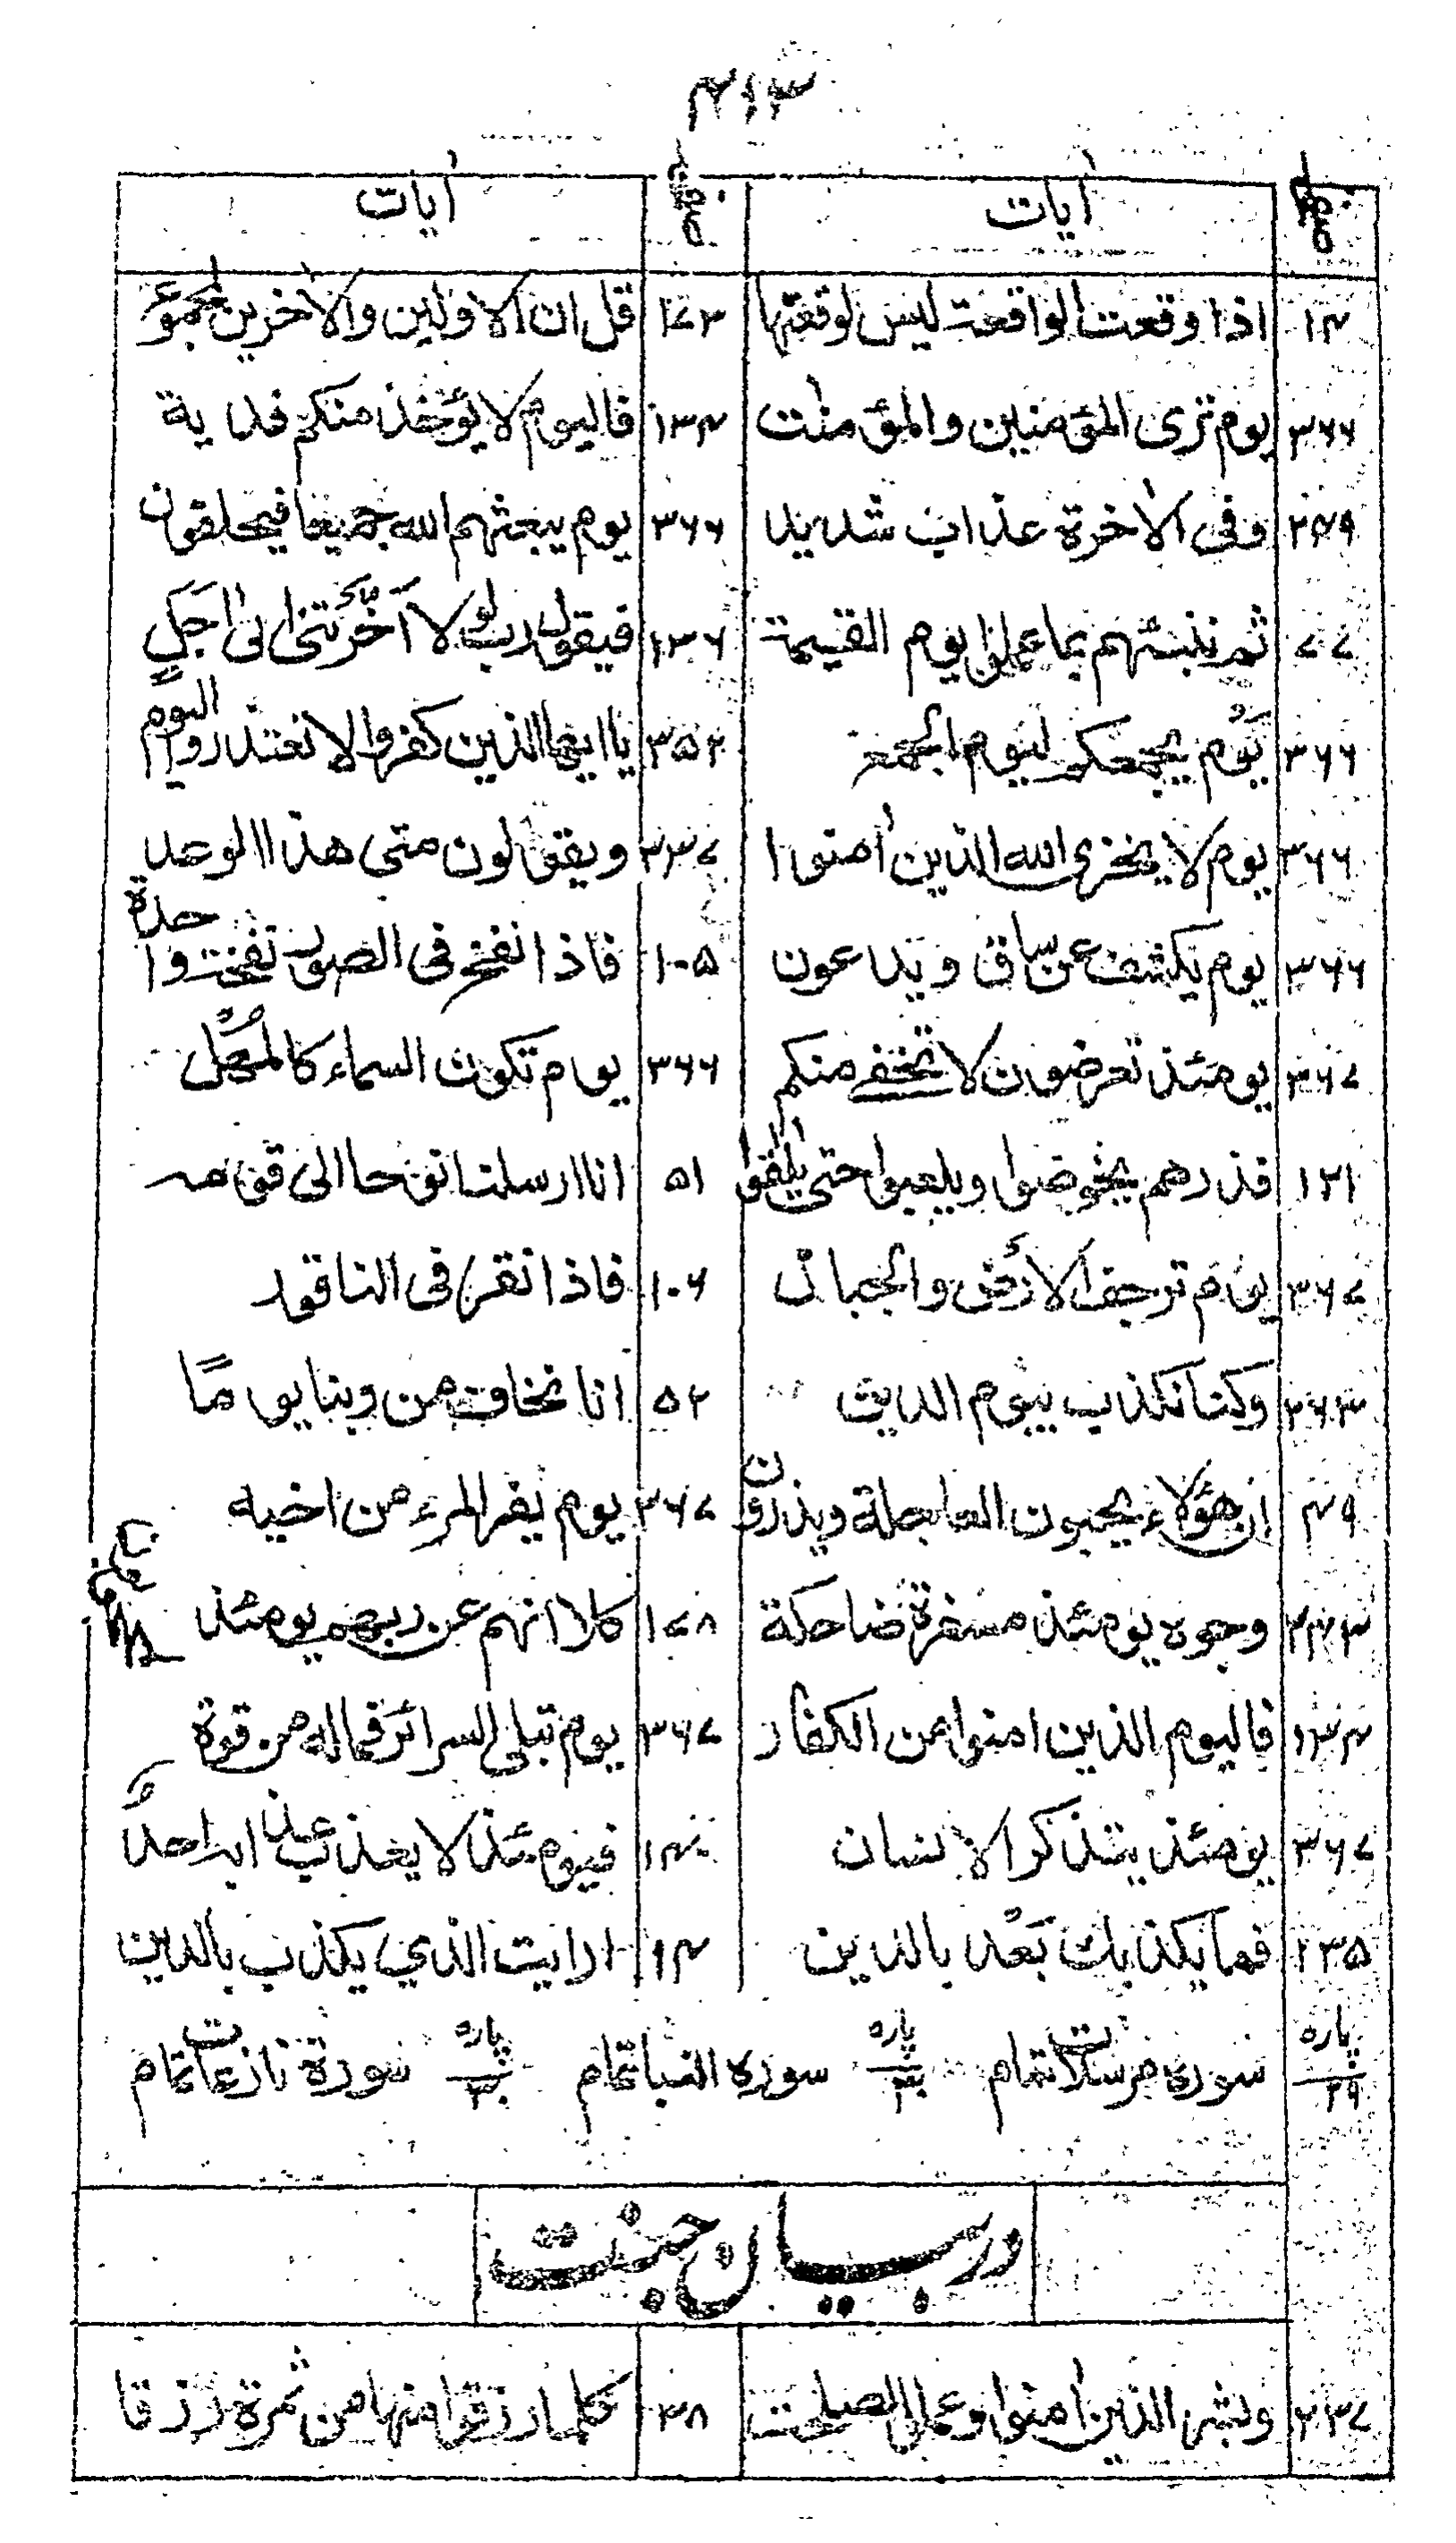 ۴۱۳
صفحہ آیات صفحہ آیات
۱۴ اذا وقعت الواقعة ليس لوقعتها ۱۷۳ قل ان الاولين والاخرين لمجموع
۳۶۶ يوم ترى المؤمنين والمؤمنٰت ۱۳۴ فاليوم لا يؤخذ منكم فدية
۲۴۹ وفى الاخرة عذاب شديد ۳۶۶ يوم يبعثهم الله جميعا فيحلفون
۷۷ ثم ننبئهم بما عملوا يوم القيٰمة ۱۳۶ فيقول رب لولا اَخَّرتنى الى اَجَلٍ
۳۶۶ يَوْم يجمعكم ليوم الجمع ۳۵۲ يا ايها الذين كفروا لا تعتذروا اليوم
۳۶۶ يوم لا يخزى الله الذين اٰمنوا ۳۳۷ ويقولون متى هذا الوعد
۳۶۶ يوم يكشف عن ساق ويدعون ۱۰۵ فاذا نفخ فى الصور نفخت واحدة
۳۶۷ يومئذ تعرضون لا تخفى منكم ۳۶۶ يوم تكون السماء كالمُهْل
۱۲۱ فذرهم يخوضوا ويلعبوا حتى يلٰقوا ۵۱ انا ارسلنا نوحا الى قومه
۳۶۷ يوم ترجف الارْض والجبال ۱۰۶ فاذا نقر فى الناقور
۳۶۳ وكنا نكذب بيوم الدين ۵۲ انا نخاف من ربنا يومًا
۴۹ ان هؤلاء يحبون العاجلة ويذرون ۳۶۷ يوم يفر المرء من اخيه
۳۴۳ وجوه يومئذ مسفرة ضاحكة ۱۷۸ كلا انهم عن ربهم يومئذ
۱۳۴ فاليوم الذين امنوا من الكفار ۳۶۷ يوم تبلى السرائر فماله من قوة
۳۶۷ يومئذ يتذكر الانسان ۱۴۰ فيومئذ لا يعذب عذابه احدٌ
۱۳۵ فما يكذبك بَعْد بالدين ۱۴ ارايت الذي يكذب بالدين
پاره ۲۹ سورة مرسلات تمام پاره ۳۰ سوره النبا تمام پاره ۳۰ سورة نازعات تمام
در بیان جنت
۲۳۷ وبشر الذين اٰمنوا وعملوا الصلحت ۳۸ كلما رزقوا منها من ثمرة رزقا